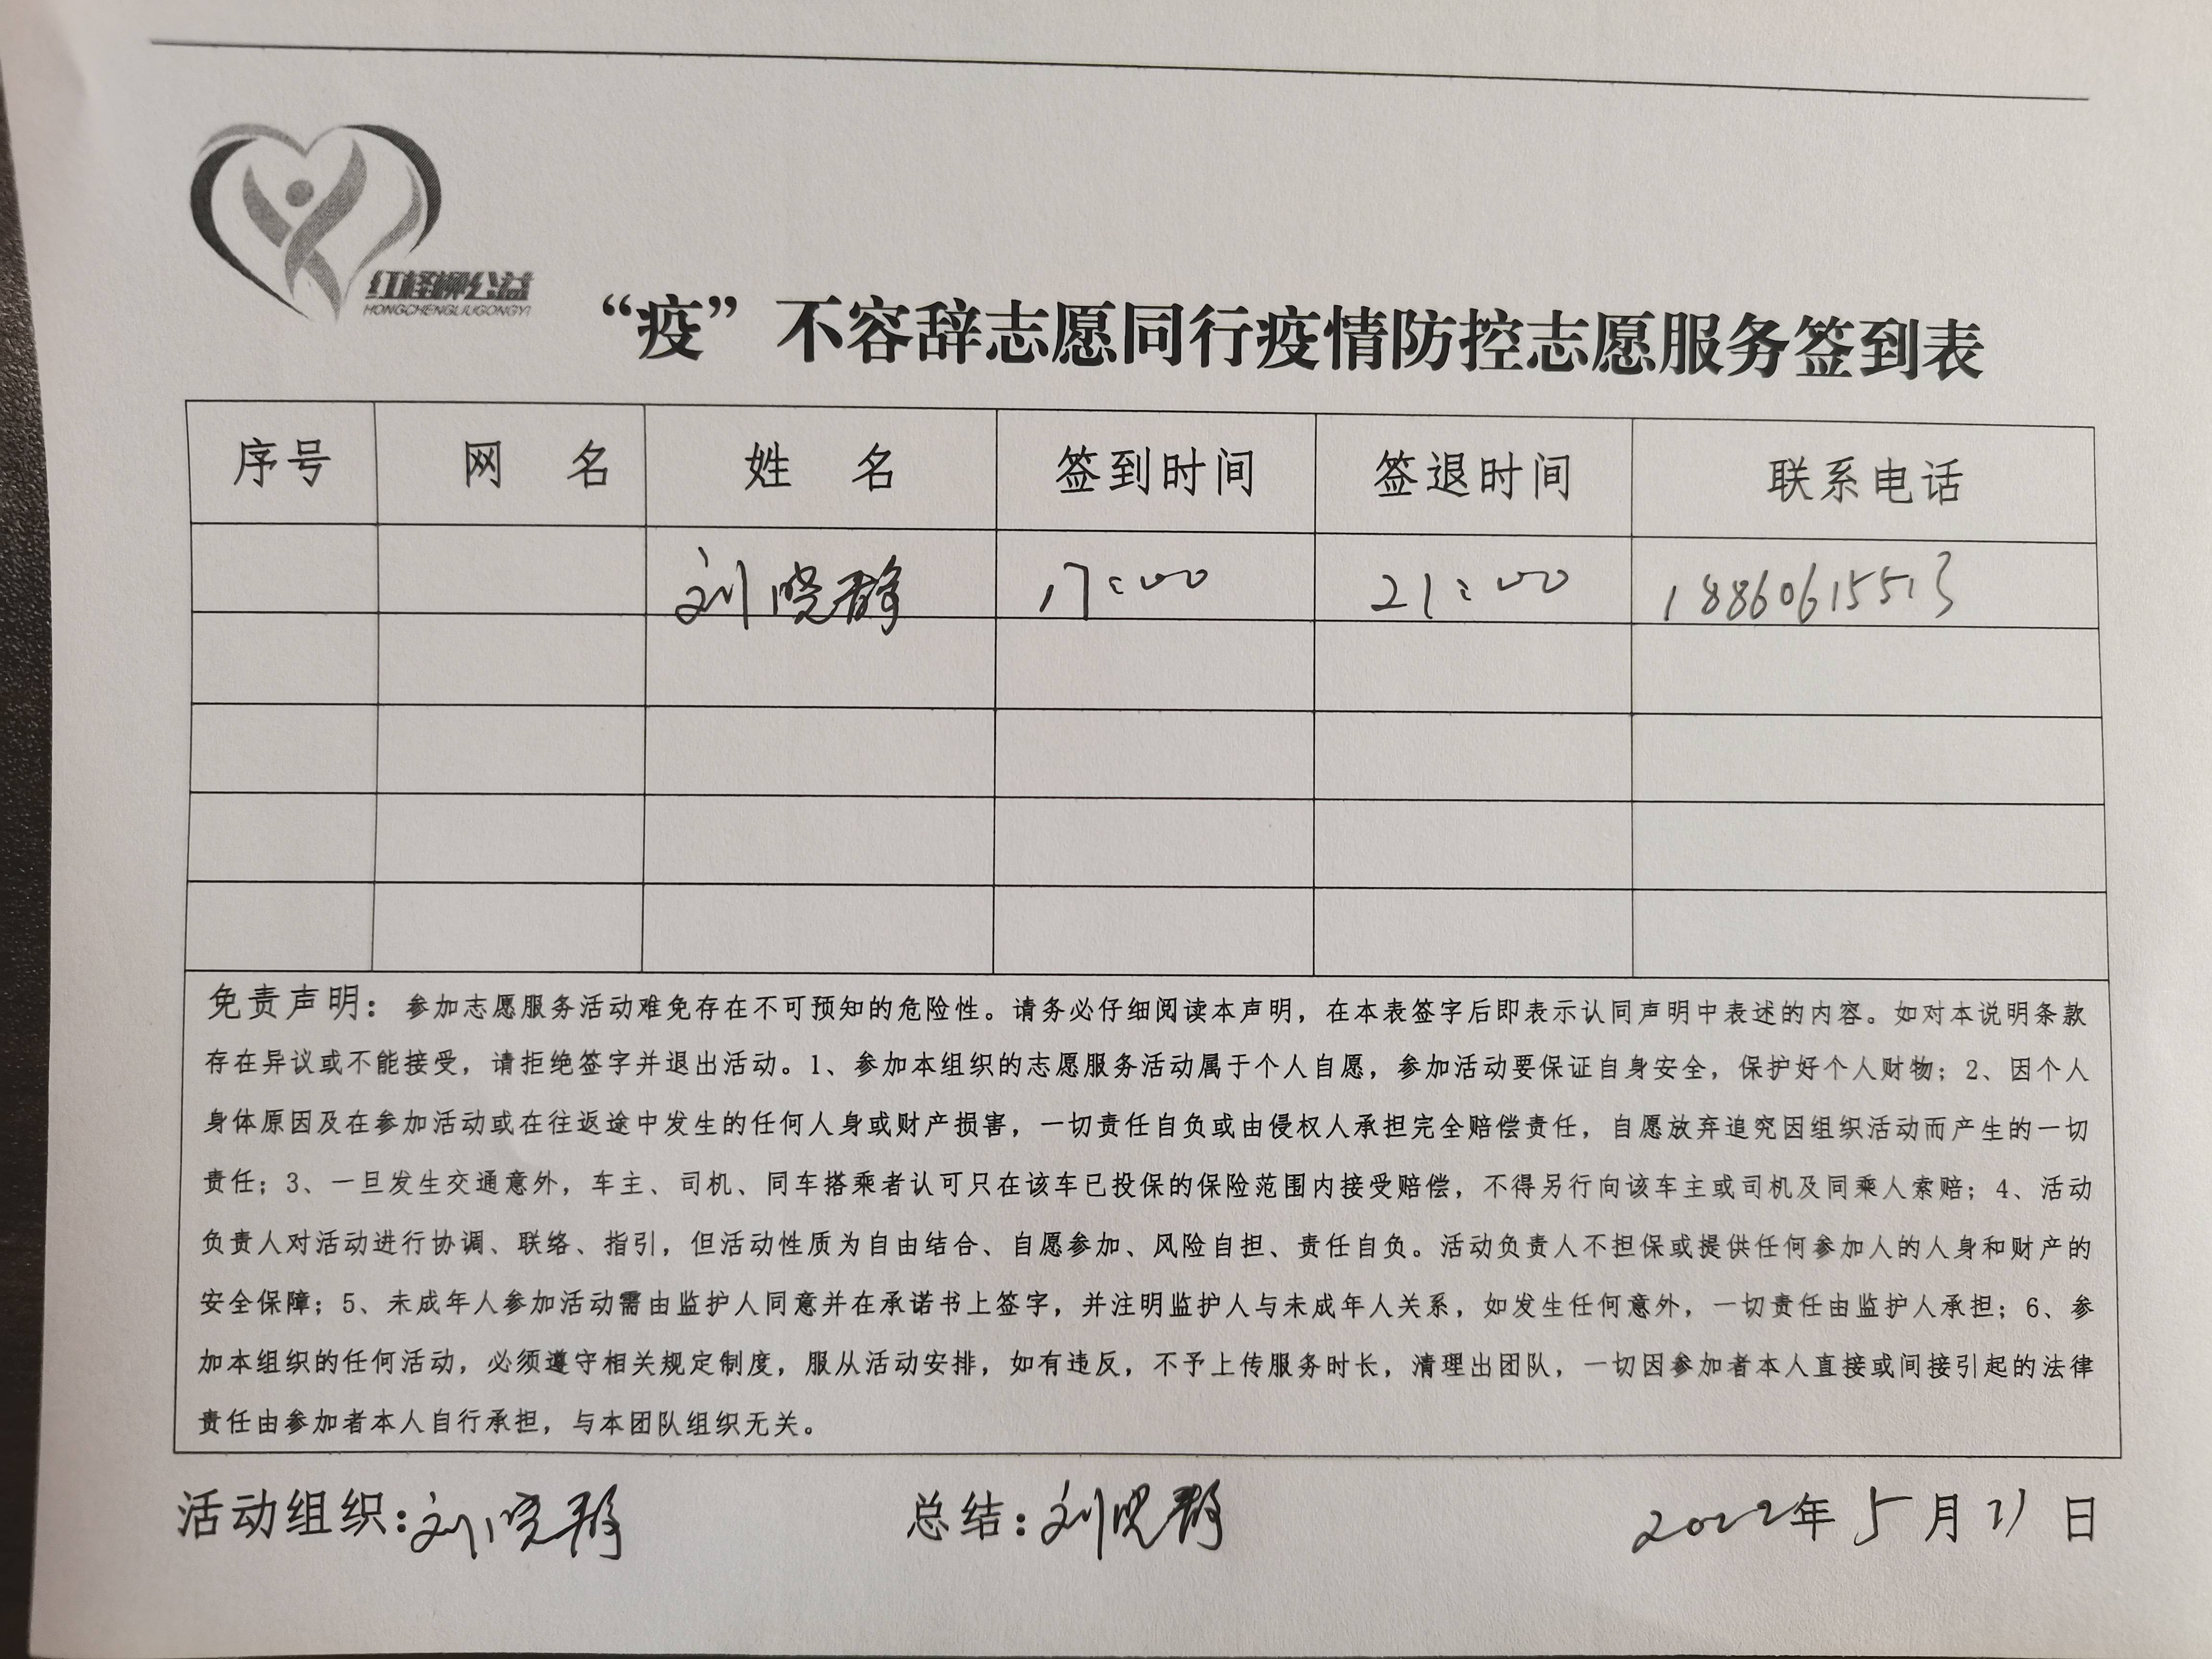 红柽柳公益
HONGCHENGLIUGONGYI
“疫”不容辞志愿同行疫情防控志愿服务签到表
序号 网 名 姓 名 签到时间 签退时间 联系电话
刘晓静 17:00 21:00 18860615513
免责声明：参加志愿服务活动难免存在不可预知的危险性。请务必仔细阅读本声明，在本表签字后即表示认同声明中表述的内容。如对本说明条款
存在异议或不能接受，请拒绝签字并退出活动。1、参加本组织的志愿服务活动属于个人自愿，参加活动要保证自身安全，保护好个人财物；2、因个人
身体原因及在参加活动或在往返途中发生的任何人身或财产损害，一切责任自负或由侵权人承担完全赔偿责任，自愿放弃追究因组织活动而产生的一切
责任；3、一旦发生交通意外，车主、司机、同车搭乘者认可只在该车已投保的保险范围内接受赔偿，不得另行向该车主或司机及同乘人索赔；4、活动
负责人对活动进行协调、联络、指引，但活动性质为自由结合、自愿参加、风险自担、责任自负。活动负责人不担保或提供任何参加人的人身和财产的
安全保障；5、未成年人参加活动需由监护人同意并在承诺书上签字，并注明监护人与未成年人关系，如发生任何意外，一切责任由监护人承担；6、参
加本组织的任何活动，必须遵守相关规定制度，服从活动安排，如有违反，不予上传服务时长，清理出团队，一切因参加者本人直接或间接引起的法律
责任由参加者本人自行承担，与本团队组织无关。
活动组织：刘晓静 总结：刘晓静 2022年5月21日